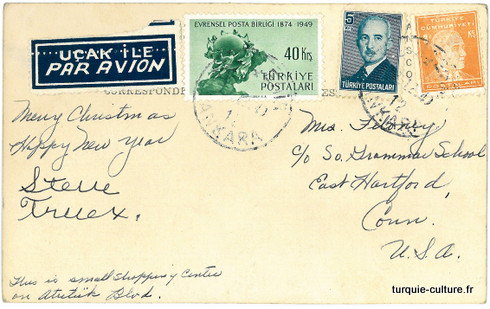 UÇAK İLE
PAR AVION
EVRENSEL POSTA BİRLİĞİ 1874 1949
40 Krş
TÜRKİYE
POSTALARI
5
TÜRKİYE POSTALARI
TÜRKİYE
CUMHURİYETİ
POSTALARI
ANKARA
12
ANKARA
Merry Christmas
Happy New Year
Steve
Truex.
Mrs.
c/o So. Grammar School
East Hartford,
Conn.
U.S.A.
This is small shopping center
on Atatük Blvd.
turquie-culture.fr